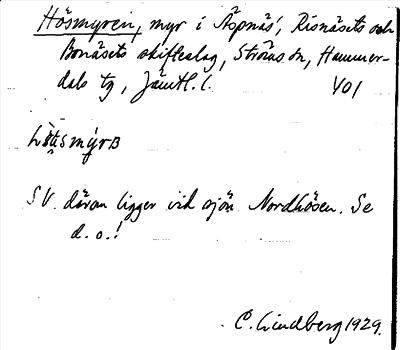 Hösmyren, myr i Äspnäs, Risnäsets och
Bonäsets skifteslag, Ströms sn, Hammer-
dals tg, Jämtl. l. 401
SV. däran ligger vid sjön Nordhösen. Se
d. o.!
C. Lindberg 1929.